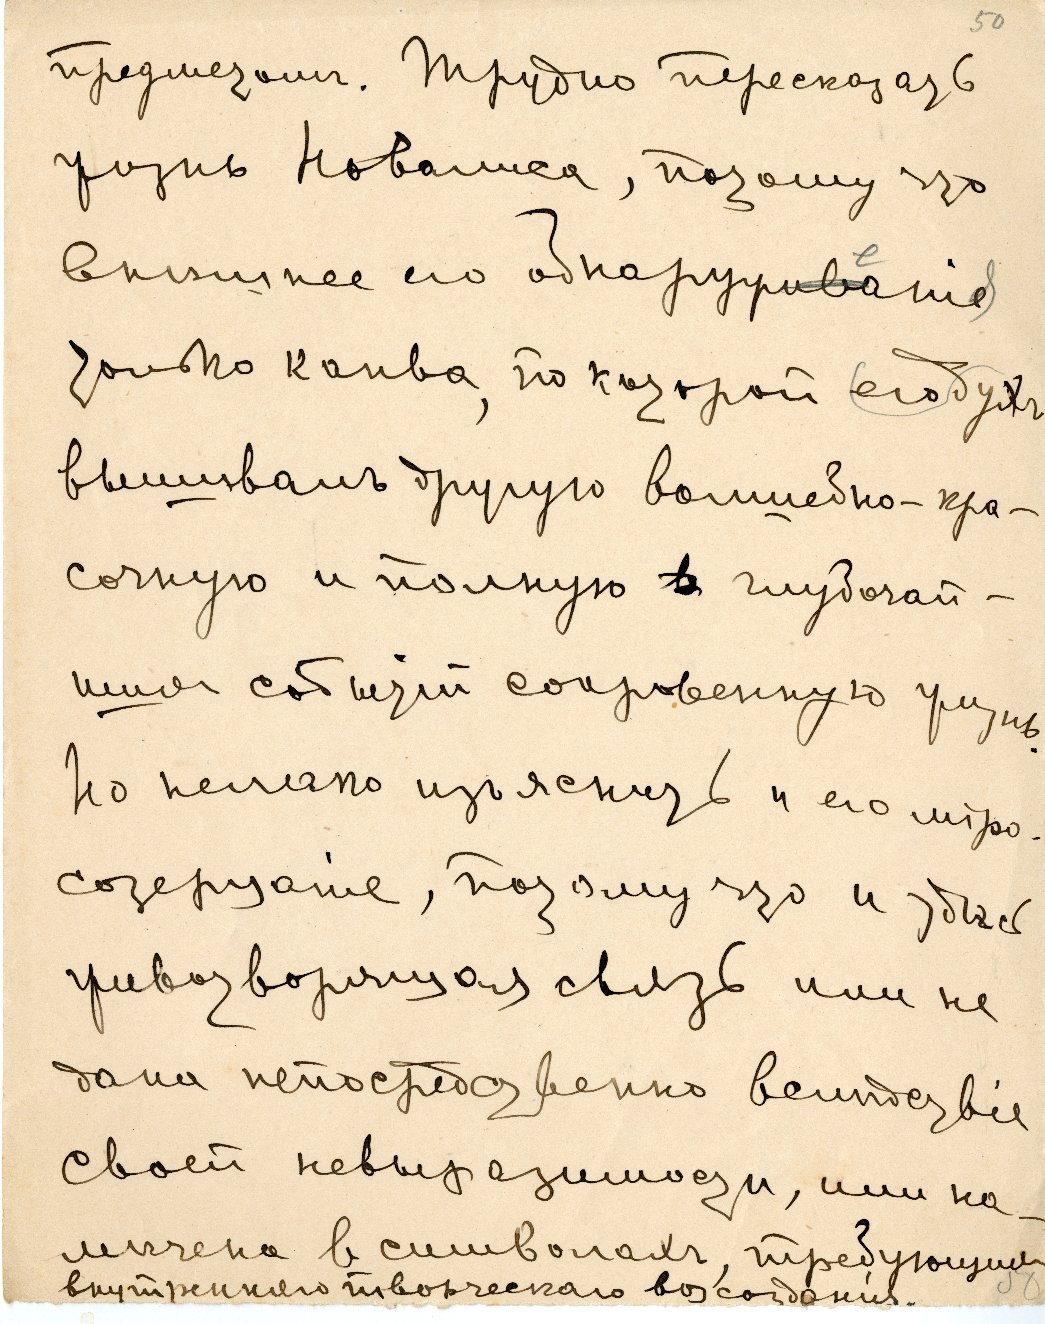 50
предметомъ. Трудно пересказать
жизнь Новалиса, потому что
внѣшнее его обнаруживаніе
только канва, по которой его духъ
вышивалъ другую волшебно-кра-
сочную и полную глубочай-
шихъ событій сокровенную жизнь.
Но нелегко изъяснить и его міро-
созерцаніе, потому что и здѣсь
животворящая связь или не
дана непосредственно вслѣдствіе
своей невыразимости, или на-
мѣчена в символахъ, требующихъ
внутренняго творческаго возсозданія.
50